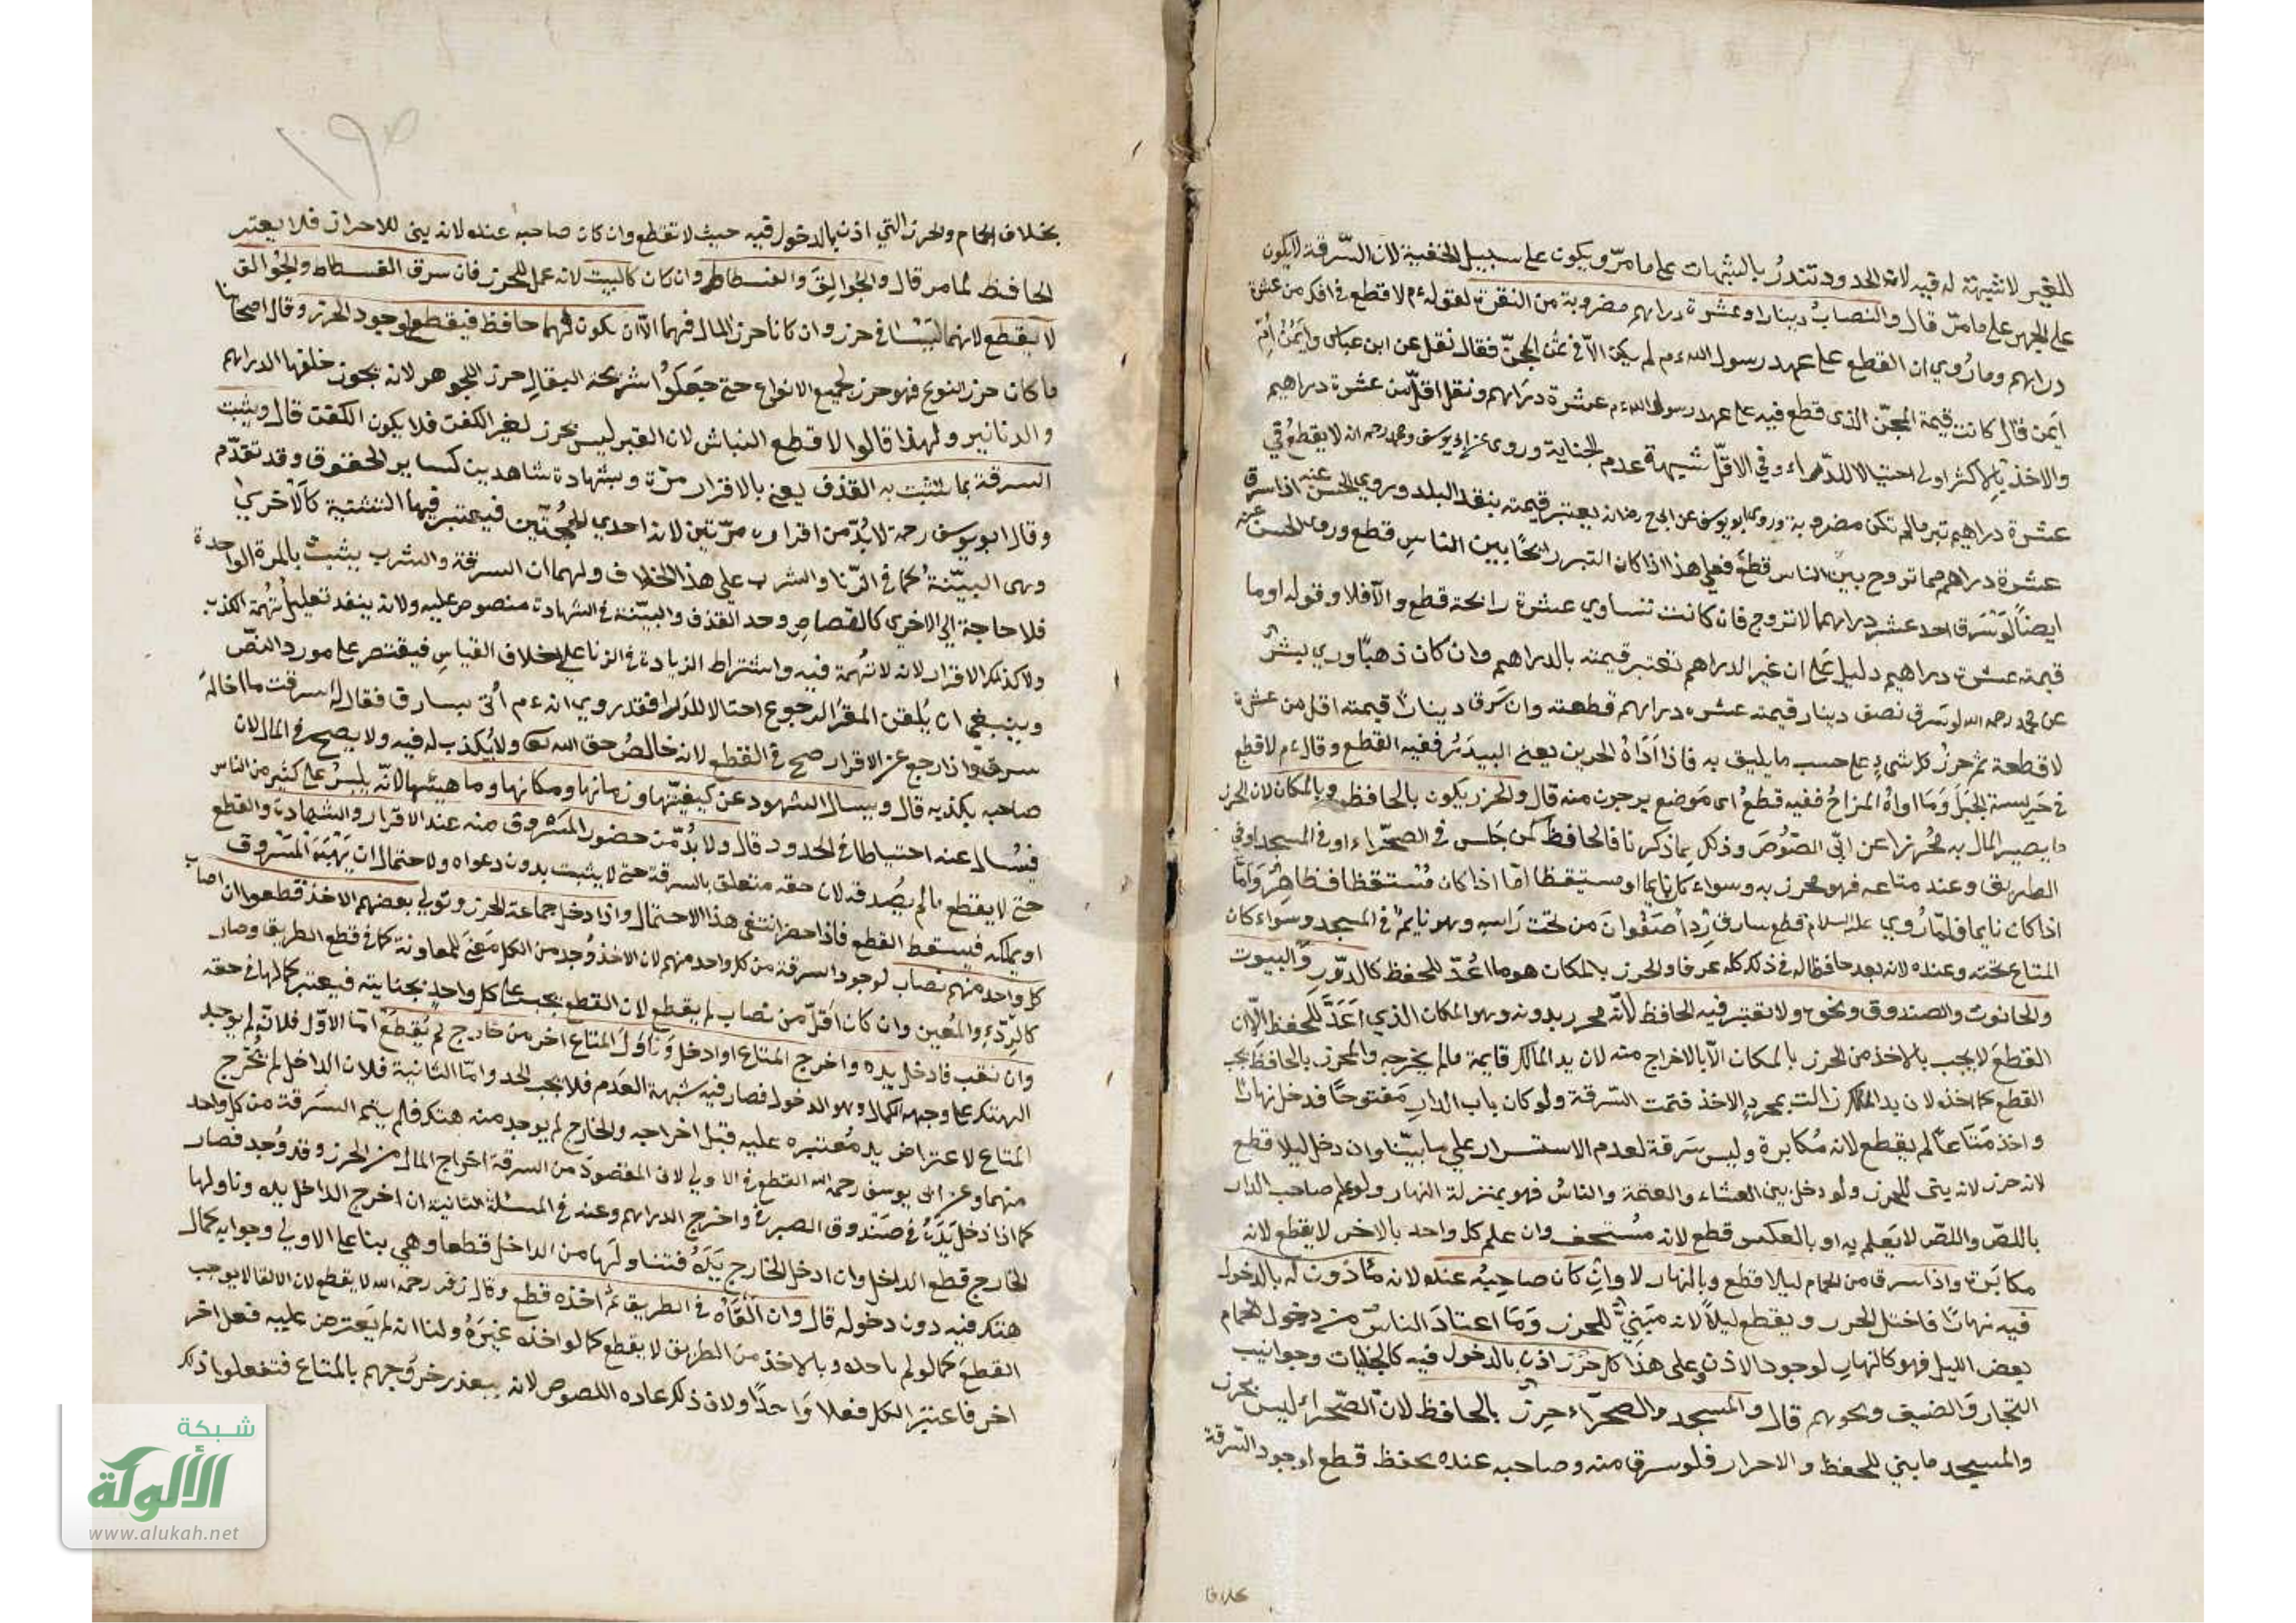 للغير لا شبهة له فيه لان الحدود تندرئ بالشبهات على ما مرّ ويكون على سبيل الخفية لان السّرقة لا يكون
على الجهر على ما مرّ قال والنصاب دينار او عشرة دراهم مضروبة من النقرة لقوله ءم لا قطع في اقل من عشرة
دراهم وما رُوي ان القطع على عهد رسول الله ءم لم يكن الاّ في ثمن المجنّ فقال نقل عن ابن عباس وايمن ابن امّ
ايمن قال كانت قيمة المجنّ الذى قطع فيه على عهد رسول الله ءم عشرة دراهم ونقل اقلّ من عشرة دراهيم
والاخذ بالاكثر اولى احتيالا للدّراء وفي الاقلّ شبهة عدم الجناية وروى عن ابي يوسف ومحمد رحمه انه لا يقطع في
عشرة دراهيم تبر مالم تكن مضروبة وروى ابو يوسف عن ابى ح رضه انه يعتبر قيمته بنقد البلد وروي الحسن عنه اذا سرق
عشرة دراهم مما تروج بين الناس قطع فعلى هذا اذا كان التبر رائجًا بين الناسِ قطع وروى الحسن عنه
ايضًا لَوْ سَرق احد عشر درهما لا تروج فان كانت تساوي عشرة رائجة قطع والاّ فلا وقوله او ما
قيمته عشرة دراهيم دليل على ان غير الدراهم تعتبر قيمته بالدراهيم وان كان ذهبًا وروي بشر
عن محمد رحمه الله لو سَرق نصف دينار قيمته عشره دراهم قطعته وان سَرق دينارًا قيمته اقل من عشرة
لا قطعة ثم حرزُ كل شيءٍ على حسب ما يليق به فاذا آواهُ الجرين يعنى البيدَرُ ففيه القطع وقال ءم لا قطع
في حَريسة الجَبَل وَمَا اواهُ المزاحُ ففيه قطعُ اى مَوضع يرجون منه قال والحرز يكون بالحافظ وبالمكان لان الحرز
ما يصير المال به مُحْرزا عن ايّى الصّوُصَ وذلك بما ذكرنا فالحافظ كمن جَلس في الصحراء او في المسجد او في
الطريق وعند متاعه فهو محرز به وسواء كان نايما او مستيقظا امّا اذا كان مُسْتقظا فظاهرٌ وَامّا
اذا كان نايما فلمّا رُوي عليه السلام قطع سارق رِدآ صَفْوان من تحت رَاسِه وهو نايمٌ في المسجد وسوَاء كان
المتاع تحته وعنده لانه يعد حافظا له في ذلك كله عرفا والحرز بالمكان هو ما اُعُدّ للحفظ كالدّور والبيوت
والحانوت والصندوق ونحوه ولا تعتبر فيه الحافظ لأنّه محرز بدونه وهو المكان الذي اعَدّ للحفظ الّا ان
القطعَ لا يجب بالاخذ من الحرز بالمكان الاّ بالاخراج منه لان يد المالك قايمة مالم يخرجه والمحرز بالحافظ يجب
القطع كما اخذه لان يد المالك زالت بمجردٍ الاخذ فتمت السّرقة ولو كان باب الدارِ مَفتوحًا فدخل نهارًا
واخذ مَتاعًا لم يقطع لانه مُكابرة وليس سَرقة لعدم الاستسرار على ما بيّنا وان دخل ليلا قطع
لانه حرز لانه بنى للحرز ولو دخل بين العشاء والعتمة والناسُ فهو بمنزلة النهار ولو علم صاحب الدار
باللصّ واللصّ لا يَعلم به او بالعكس قطع لانه مُسْتخف وان علم كل واحد بالاخر لا يقطع لانه
مكابَرة واذا سرق من الحمام ليلا قطع وبالنهار لا وان كان صاحبُه عنده لانه مأذون له بالدخول
فيه نهارًا فاختل الحرز ويقطع ليلاً لانه مَبنيٌّ للحرز وَمَا اعتادَ الناسُ من دخول الحمام
بعض الليل فهو كالنهار لوجود الاذن وعلى هذا كل حرز اذن بالدخول فيه كالخانات وحوانيت
التجار والضيف ونحوهم قال والمسجد والصحرَاء حرز بالحافظ لانّ الصّحراءَ ليس بحرز
والمسجد ما بني للحفظ والاحراز فلو سرق منه وصاحبه عنده يحفظ قطع لوجود السّرقة
بخلاف
بخلاف الحمام والحرز التي اذن بالدخول فيه حيث لا تقطع وان كان صاحبه عنده لانه بنى للاحراز فلا يعتبر
الحافظ لما مر قال والجُوالِقَ والفسطاط وان كان كالبيت لانه عمل للحرز فان سرق الفسطاط والجُوالق
لا يقطع لانهما لَيْسَا في حرز وان كانا حرز المال فيهما الاّ ان يكون لهما حافظ فيقطع لوجود الحرز وقال اصحابنا
ما كان حرز النوع فهو حرز لجميع الانواع حتى جَعَلوُا شريجة البقالِ حرز الجوهر لانه يحوز خلفها الدراهم
والدنانير ولهذا قالوا لا قطع النباش لان القبر ليس بحرز لغير الكفن فلا يكون الكفن قال ويثبت
السرقة بما تثبت به القذف يعنى بالاقرار مرّة وبشهادة شاهدين كساير الحقوق وقد تقدّم
وقال ابو يوسف رحمه لا بُدّ من اقراره مرّتين لانه احدي الحُجّتَين فيعتبر فيها التثنية كالاُخري
وهى البيّنة كما في الزّنا والشرب على هذا الخلاف ولهما ان السرقة والشرب يثبت بالمرة الواحدة
فلا حاجة الي الاخري كالقصاص وحد القذف والبيّنة في الشهادة منصوص عليه ولانه ينفد تعليل تُهمة الكذب
ولا كذلك الاقرار لانه لا تُهمة فيه واشتراط الزيادة في الزنا على خلاف القياسِ فيقتصر على مورد النصّ
وينبغى ان يُلقن المقرّ الرجوع احتيالا للدَرء فقد روي انه ءم اُتي بسارق فقال له اسرقت ما اخالهُ
سرق واذا رجع عن الاقرار صح في القطع لانه خالصُ حق الله تعالى ولا يُكذب له فيه ولا يصح في المال لان
صاحبه يكذبه قال ويسال الشهود عن كيفيّتها وزمانها ومكانها وماهيتها لانّه يلبسُ على كثير من الناس
فيُسَال عنه احتياطا في الحدود قال ولا بُدّ من حضور المَسْروق منه عند الاقرار والشهادة والقطع
حتى لا يقطع مالم يصُدقه لان حقه متعلق بالسرقة حتى لا يثبت بدون دعواه ولاحتمال ان يَهَبَهُ المَسْروق
او يملكه فيسقط القطع فاذا حضر انتفى هذا الاحتمال واذا دخل جماعة الحرز وتولي بعضهم الاخذ قطعوا ان اصاب
كل واحد منهم نصاب لوجود السرقة من كل واحد منهم لان الاخذ وُجد من الكل مَعنًى للمعاونة كما في قطع الطريق وصار
كالرِدّءِ والمُعين وان كان اقلّ من نصاب لم يقطع لان القطع يجب على كل واحدٍ بجنايته فيعتبر كمالها في حقه
وان نقب فادخل يده واخرج المتاع او ادخل وَناوَلَ المتاع اخر من خارج لم يُقطعَ امّا الاوّل فلانّه لم يوجد
الهتك على وجهه الكمال وهو الدخول فصار فيه شبهة العَدم فلا يجب الحد وامّا الثانية فلان الداخل لم يُخْرج
المتاع لاعتراض يد مُعتبره عليه قبل اخراجه والخارج لم يوجد منه هتك فلم يتم السَرقة من كل واحد
منهما وعن ابى يوسف رحمه الله القطع في الاولي لان المقصُودَ من السرقة اخراج المال من الحرز وقد وُجد فصار
كما اذا دخل يَدَهُ في صَندوق الصيرفي واخرج الدراهم وعنه في المسئلة الثانية ان اخرج الداخل يده وناولها
الخارج قطع الداخل وان ادخل الخارج يَدَهُ فتناولَها من الداخل قطعا وهي بنا على الاولي وجوابه كمال
هتك فيه دون دخوله قال وان اَلْقَاهُ في الطريق ثم اخذه قطع وقال زفر رحمه الله لا يقطع لان الالقا لا يوجب
القطعَ كما لو لم ياخده وبالاخذ من الطريق لا يقطع كما لو اخذه غَيرهُ ولنا انه لم يَعترض عليه فعل اخر
اخر فاعتبر الكل فعلا وَاحدًا ولان ذلك عاده اللصوص لانه يتعذر خروَجهم بالمتاع فتفعلو اذلك
شبكة
الألوكة
www.alukah.net